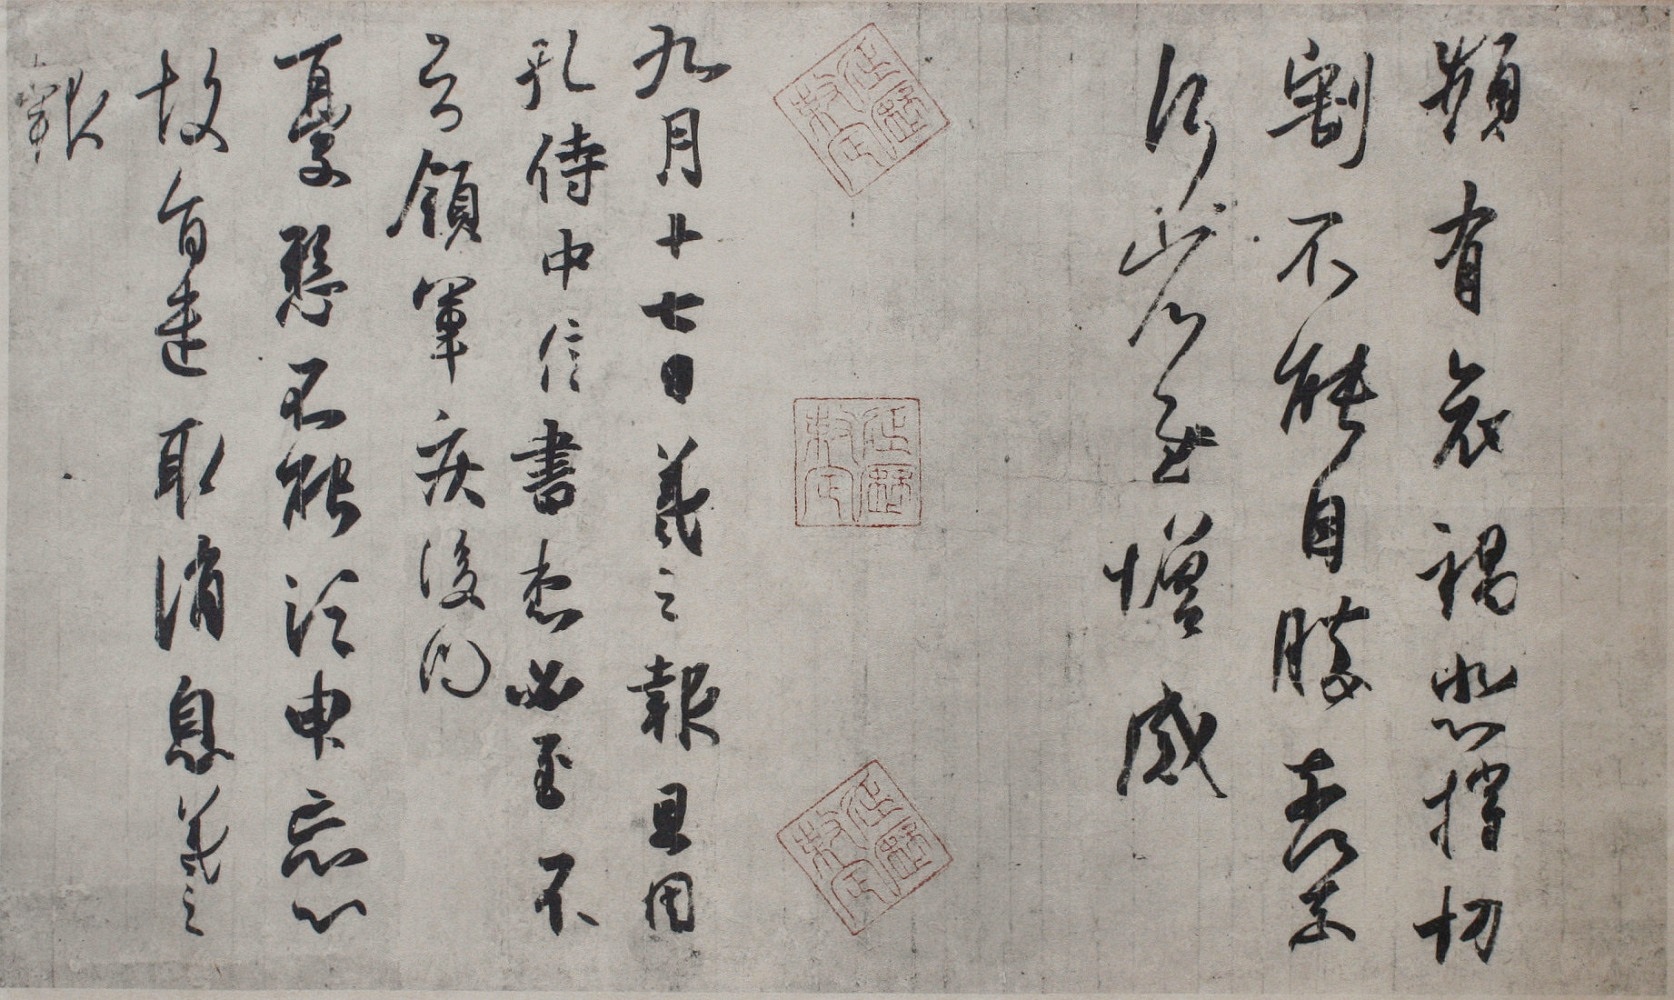 頻有哀禍悲摧切
割不能自勝奈何奈
何省慰增感
延曆敕定
延曆敕定
延曆敕定
九月十七日羲之報且因
孔侍中信書想必至不
知領軍疾後問
憂懸不能須臾忘心
故旨遣取消息羲之
報